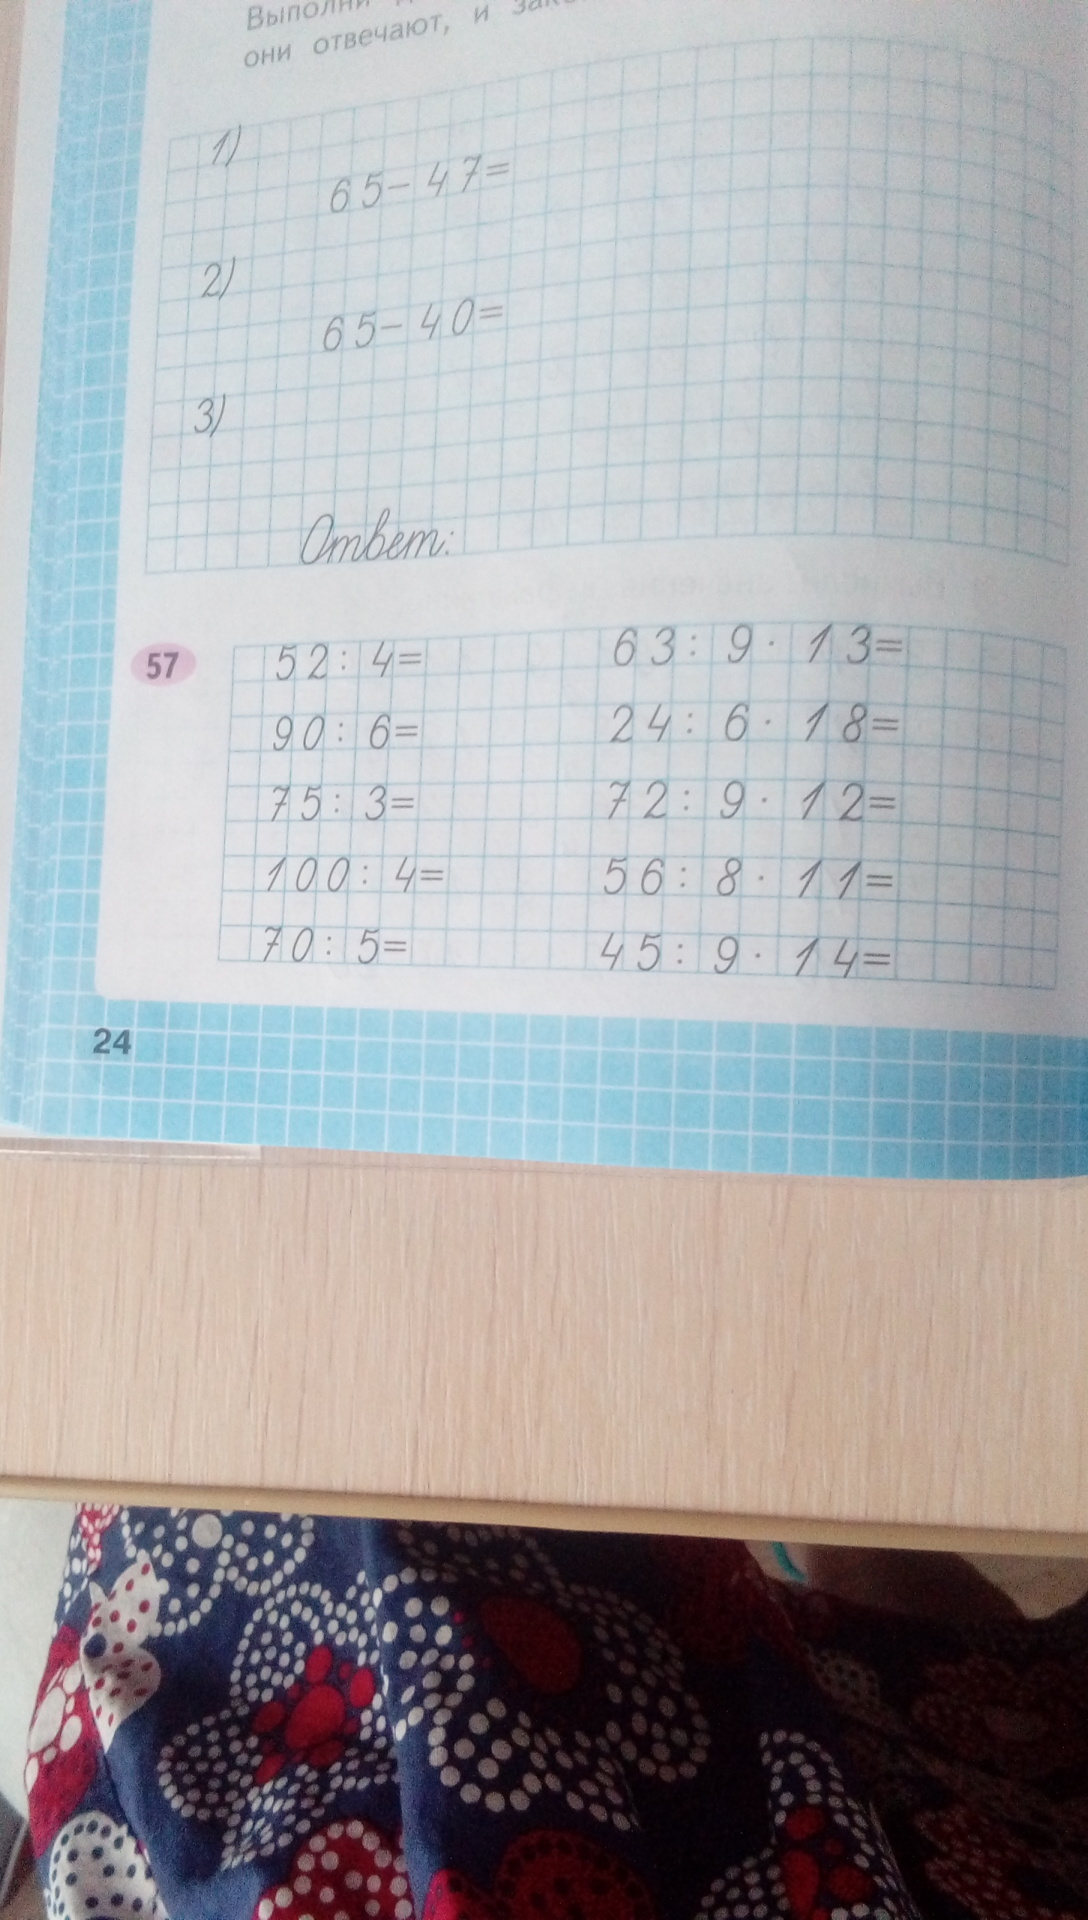 Выполни
они отвечают, и
1)
65-47=
2)
65-40=
3)
Ответ:
57
52: 4= 63: 9· 13=
90: 6= 24: 6· 18=
75: 3= 72: 9· 12=
100: 4= 56: 8· 11=
70: 5= 45: 9· 14=
24